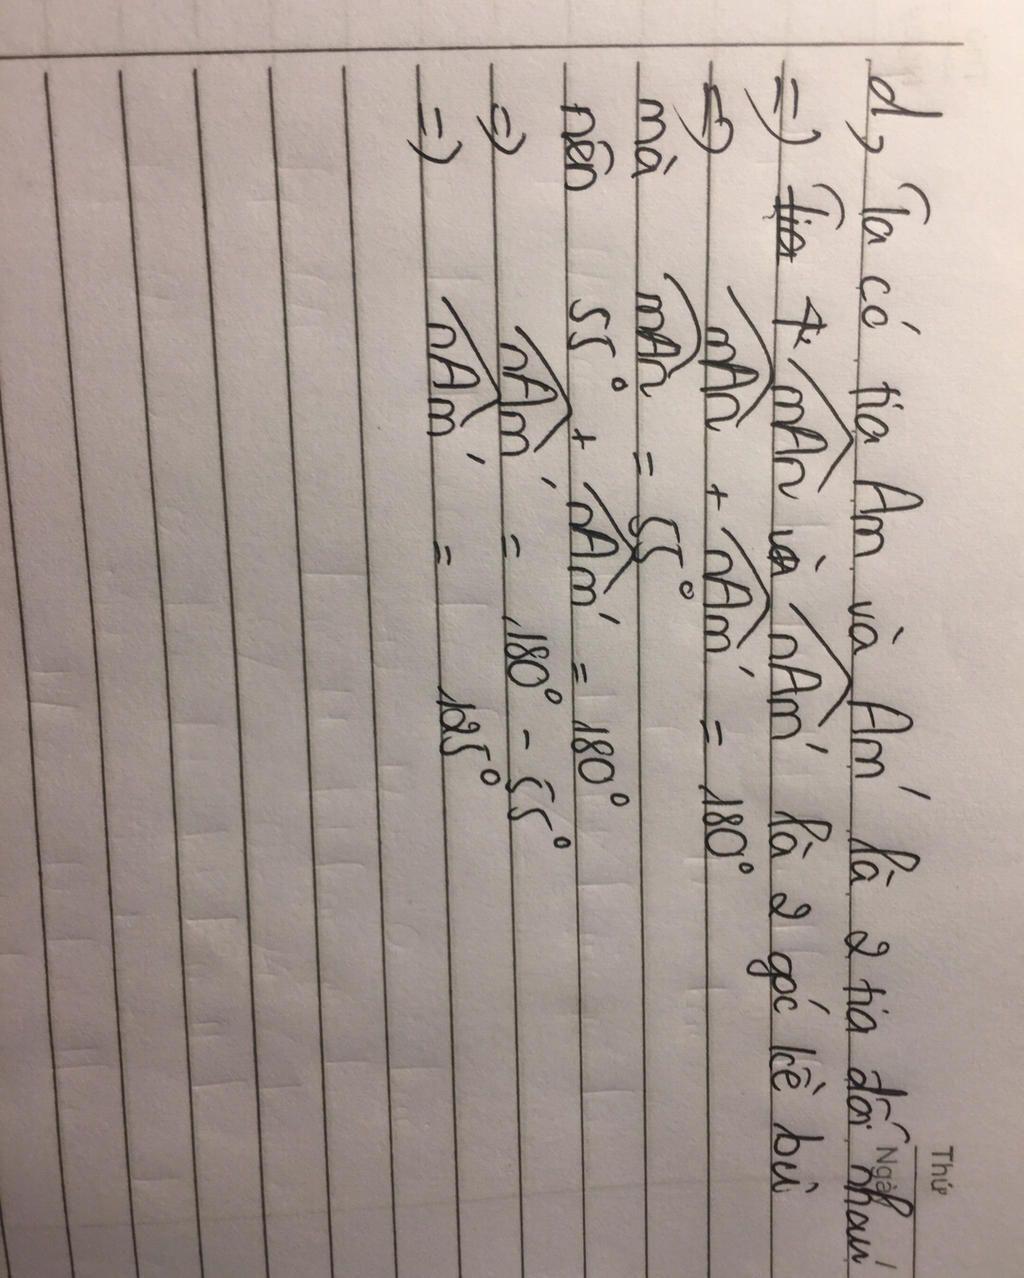 Thứ
Ngà
d, Ta có tia Am và Am' là 2 tia đối nhau
=) Tia mAn và nAm' là 2 góc kề bù
=) mAn + nAm' = 180°
mà mAn = 55°
nên 55° + nAm' = 180°
=) nAm' = 180° - 55°
=) nAm' = 125°